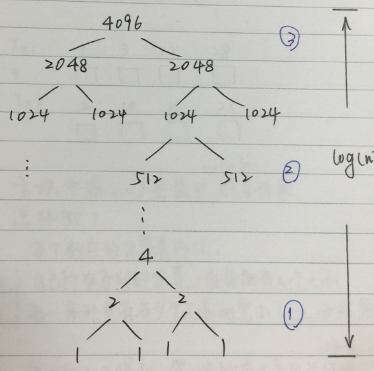 4096 ③
2048 2048
1024 1024 1024 1024
512 512 ② log(n
4
2 2
①
1 1 1 1